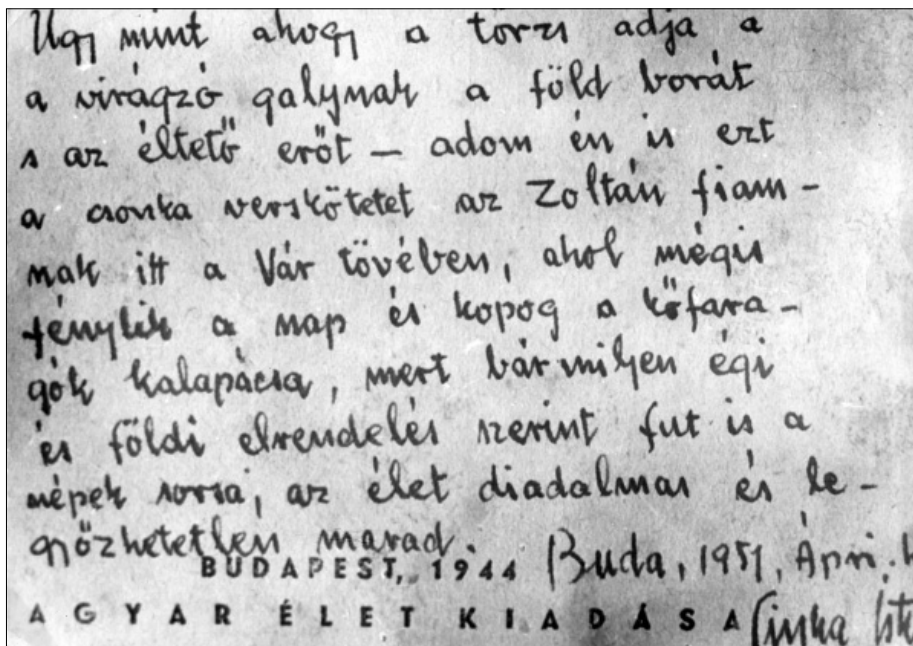 Úgy mint ahogy a törzs adja a
a virágzó galynak a föld borát
s az éltető erőt — adom én is ezt
a csonka verskötetet az Zoltán fiam-
nak itt a Vár tövében, ahol mégis
fénylik a nap és kopog a kőfara-
gók kalapácsa, mert bármilyen égi
és földi elrendelés szerint fut is a
népek sorsa, az élet diadalmas és le-
győzhetetlen marad.
BUDAPEST, 1944 Buda, 1951, Ápri.
AGYAR ÉLET KIADÁSA Sinka Ist